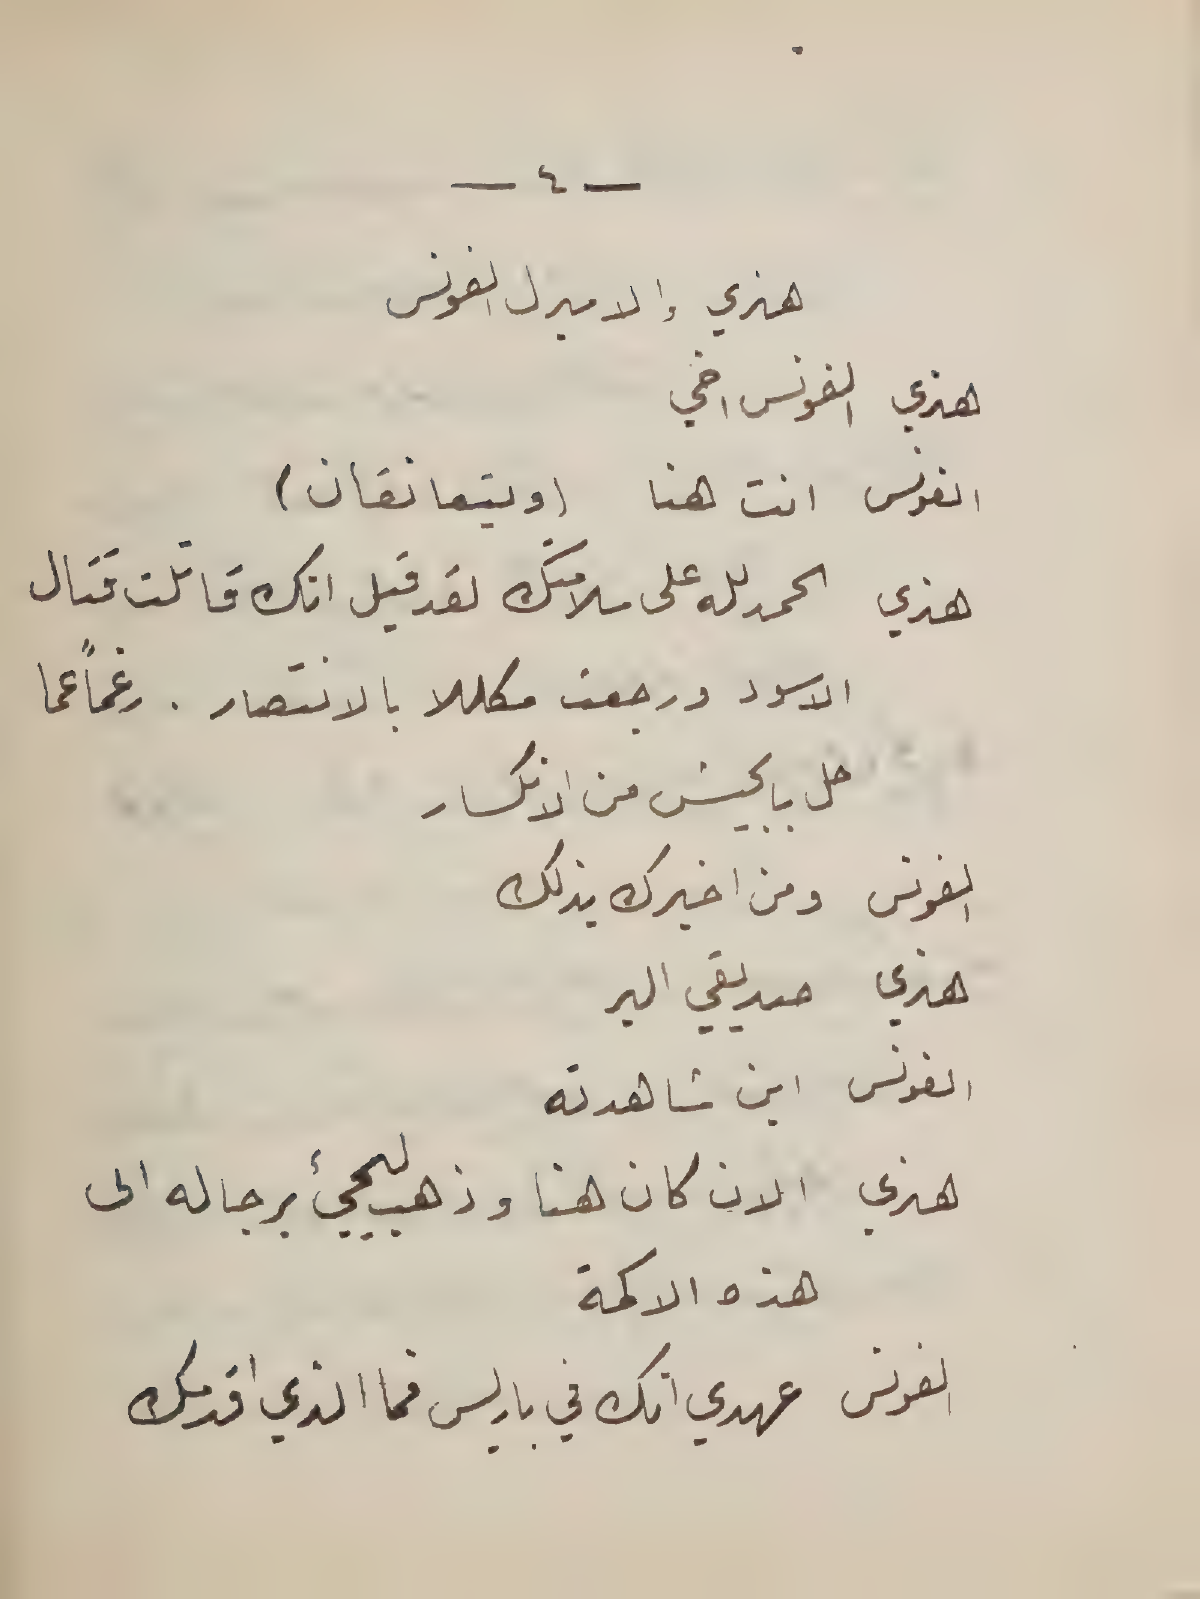 — ٤ —
هنري والاميرل الفونس
هنري الفونس اخي
الفونس انت هنا (ويتعانقان)
هنري الحمد لله على سلامتك لقد قيل انك قاتلت قتال
الاسود ورجعت مكللا بالانتصار . رغماً عما
حل بالجيش من الانكسار
الفونس ومن اخبرك بذلك
هنري صديقي البر
الفونس اين شاهدته
هنري الان كان هنا وذهب ليجيئ برجاله الى
هذه الاكمة
الفونس عهدي انك في باريس فما الذي اقدمك